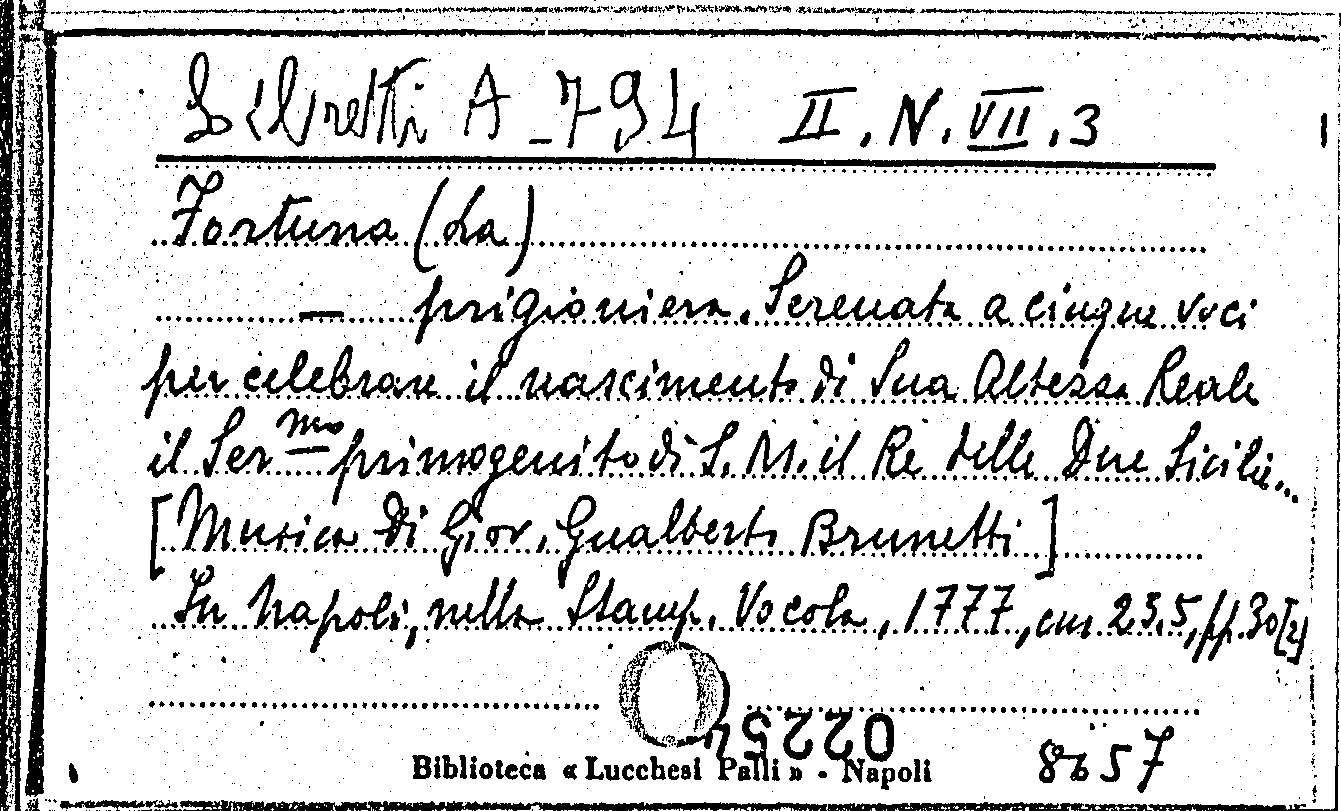 Libretti A - 794 II. N. VII. 3
Fortuna (La)
— prigioniera. Serenata a cinque voci
per celebrare il nascimento di Sua Altezza Reale
il Ser mo primogenito di S. M. il Re delle Due Sicilie...
[Musica di Giov. Gualberto Brunetti]
In Napoli, nella Stamp. Vocola, 1777, cm 23.5, pp. 30 [2]
02254
Biblioteca « Lucchesi Palli » - Napoli
8657